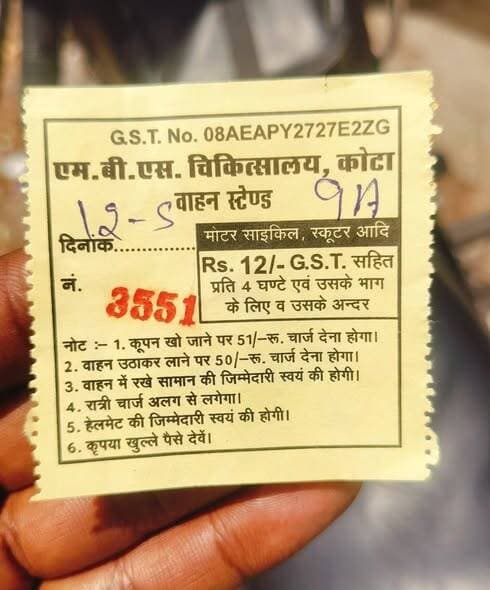 G.S.T. No. 08AEAPY2727E2ZG
एम.बी.एस. चिकित्सालय, कोटा
वाहन स्टेण्ड
12-5
9A
दिनांक..............
मोटर साइकिल, स्कूटर आदि
Rs. 12/- G.S.T. सहित
प्रति 4 घण्टे एवं उसके भाग
के लिए व उसके अन्दर
नं.
3551
नोट :- 1. कूपन खो जाने पर 51/-रू. चार्ज देना होगा।
2. वाहन उठाकर लाने पर 50/-रू. चार्ज देना होगा।
3. वाहन में रखे सामान की जिम्मेदारी स्वयं की होगी।
4. रात्री चार्ज अलग से लगेगा।
5. हेलमेट की जिम्मेदारी स्वयं की होगी।
6. कृपया खुल्ले पैसे देवें।